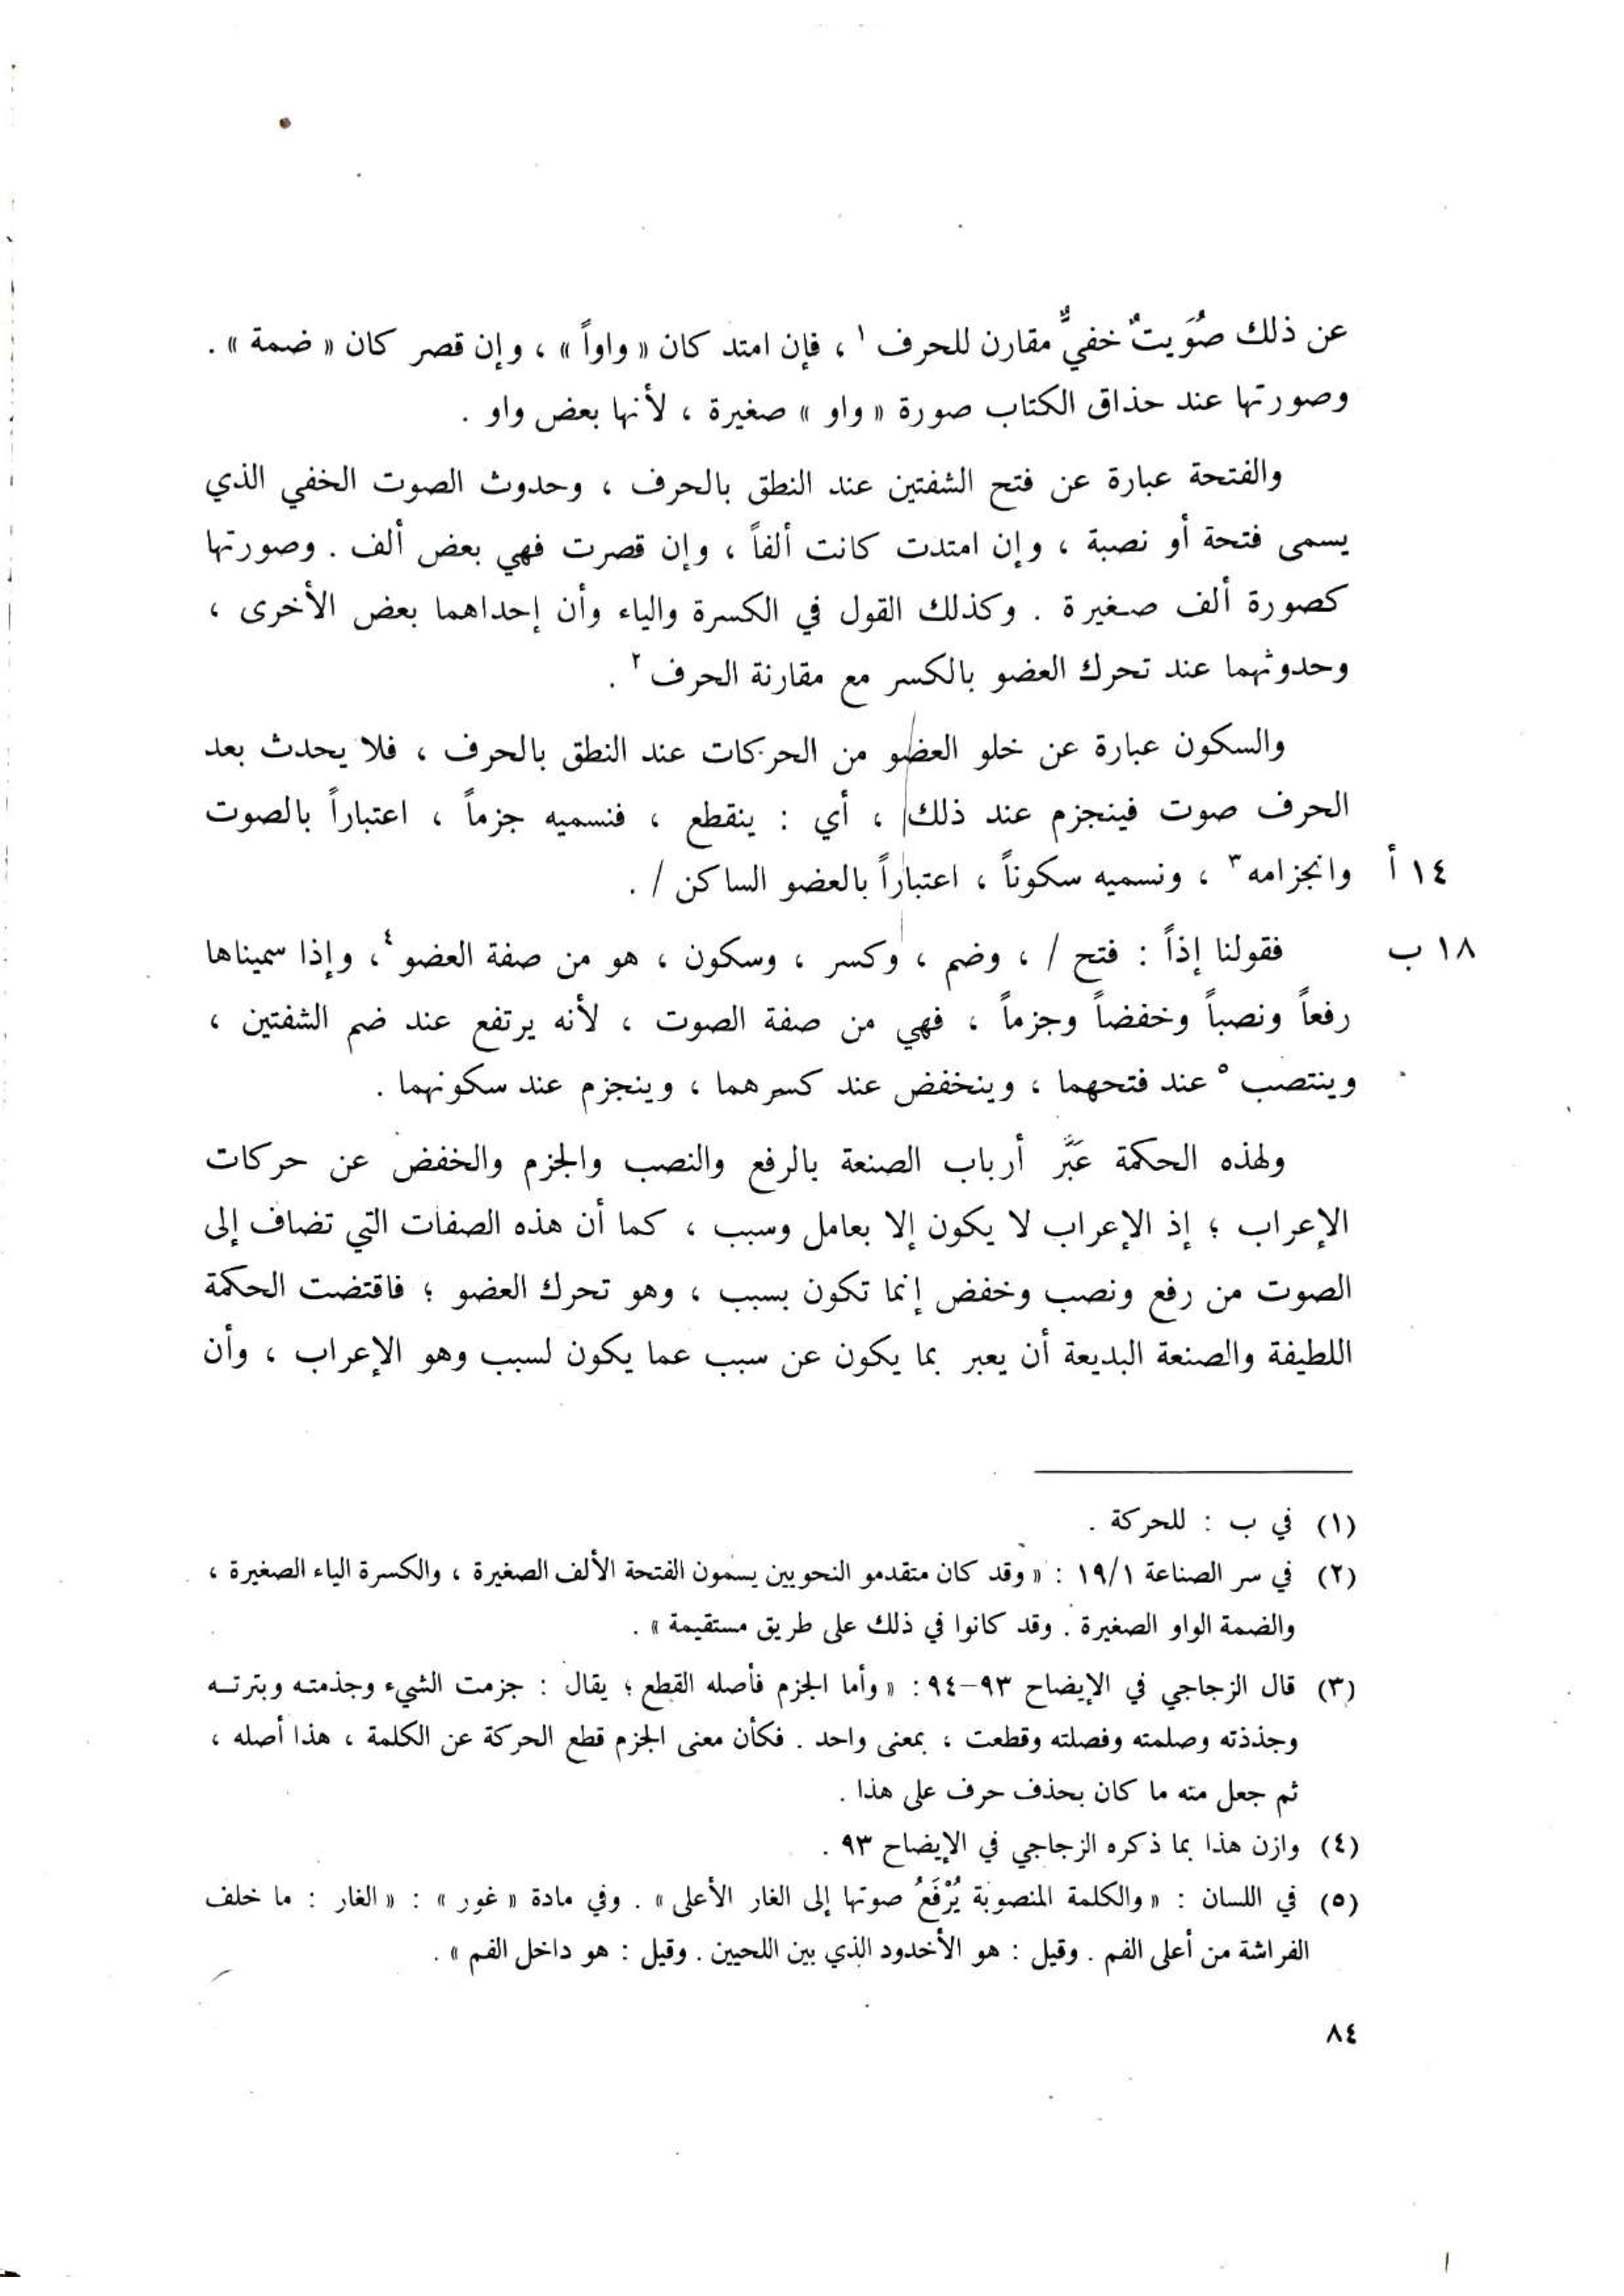 عن ذلك صُوَيتٌ خفيٌّ مقارن للحرف ١ ، فإن امتد كان « واواً » ، وإن قصر كان « ضمة » .
وصورتها عند حذاق الكتاب صورة « واو » صغيرة ، لأنها بعض واو .
والفتحة عبارة عن فتح الشفتين عند النطق بالحرف ، وحدوث الصوت الخفي الذي
يسمى فتحة أو نصبة ، وإن امتدت كانت ألفاً ، وإن قصرت فهي بعض ألف . وصورتها
كصورة ألف صغيرة . وكذلك القول في الكسرة والياء وأن إحداهما بعض الأخرى ،
وحدوثهما عند تحرك العضو بالكسر مع مقارنة الحرف ٢ .
والسكون عبارة عن خلو العضو من الحركات عند النطق بالحرف ، فلا يحدث بعد
الحرف صوت فينجزم عند ذلك ، أي : ينقطع ، فنسميه جزماً ، اعتباراً بالصوت
١٤ أ وانجزامه ٣ ، ونسميه سكوناً ، اعتباراً بالعضو الساكن / .
١٨ ب فقولنا إذاً : فتح / ، وضم ، وكسر ، وسكون ، هو من صفة العضو ٤ ، وإذا سميناها
رفعاً ونصباً وخفضاً وجزماً ، فهي من صفة الصوت ، لأنه يرتفع عند ضم الشفتين ،
وينتصب ٥ عند فتحهما ، وينخفض عند كسرهما ، وينجزم عند سكونهما .
ولهذه الحكمة عَبَّر أرباب الصنعة بالرفع والنصب والجزم والخفض عن حركات
الإعراب ؛ إذ الإعراب لا يكون إلا بعامل وسبب ، كما أن هذه الصفات التي تضاف إلى
الصوت من رفع ونصب وخفض إنما تكون بسبب ، وهو تحرك العضو ؛ فاقتضت الحكمة
اللطيفة والصنعة البديعة أن يعبر بما يكون عن سبب عما يكون لسبب وهو الإعراب ، وأن
(١) في ب : للحركة .
(٢) في سر الصناعة ١٩/١ : « وقد كان متقدمو النحويين يسمون الفتحة الألف الصغيرة ، والكسرة الياء الصغيرة ،
والضمة الواو الصغيرة . وقد كانوا في ذلك على طريق مستقيمة » .
(٣) قال الزجاجي في الإيضاح ٩٣–٩٤ : « وأما الجزم فأصله القطع ؛ يقال : جزمت الشيء وجذمته وبترته
وجذذته وصلمته وفصلته وقطعت ، بمعنى واحد . فكأن معنى الجزم قطع الحركة عن الكلمة ، هذا أصله ،
ثم جعل منه ما كان بحذف حرف على هذا .
(٤) وازن هذا بما ذكره الزجاجي في الإيضاح ٩٣ .
(٥) في اللسان : « والكلمة المنصوبة يُرْفَعُ صوتها إلى الغار الأعلى » . وفي مادة « غور » : « الغار : ما خلف
الفراشة من أعلى الفم . وقيل : هو الأخدود الذي بين اللحيين . وقيل : هو داخل الفم » .
٨٤